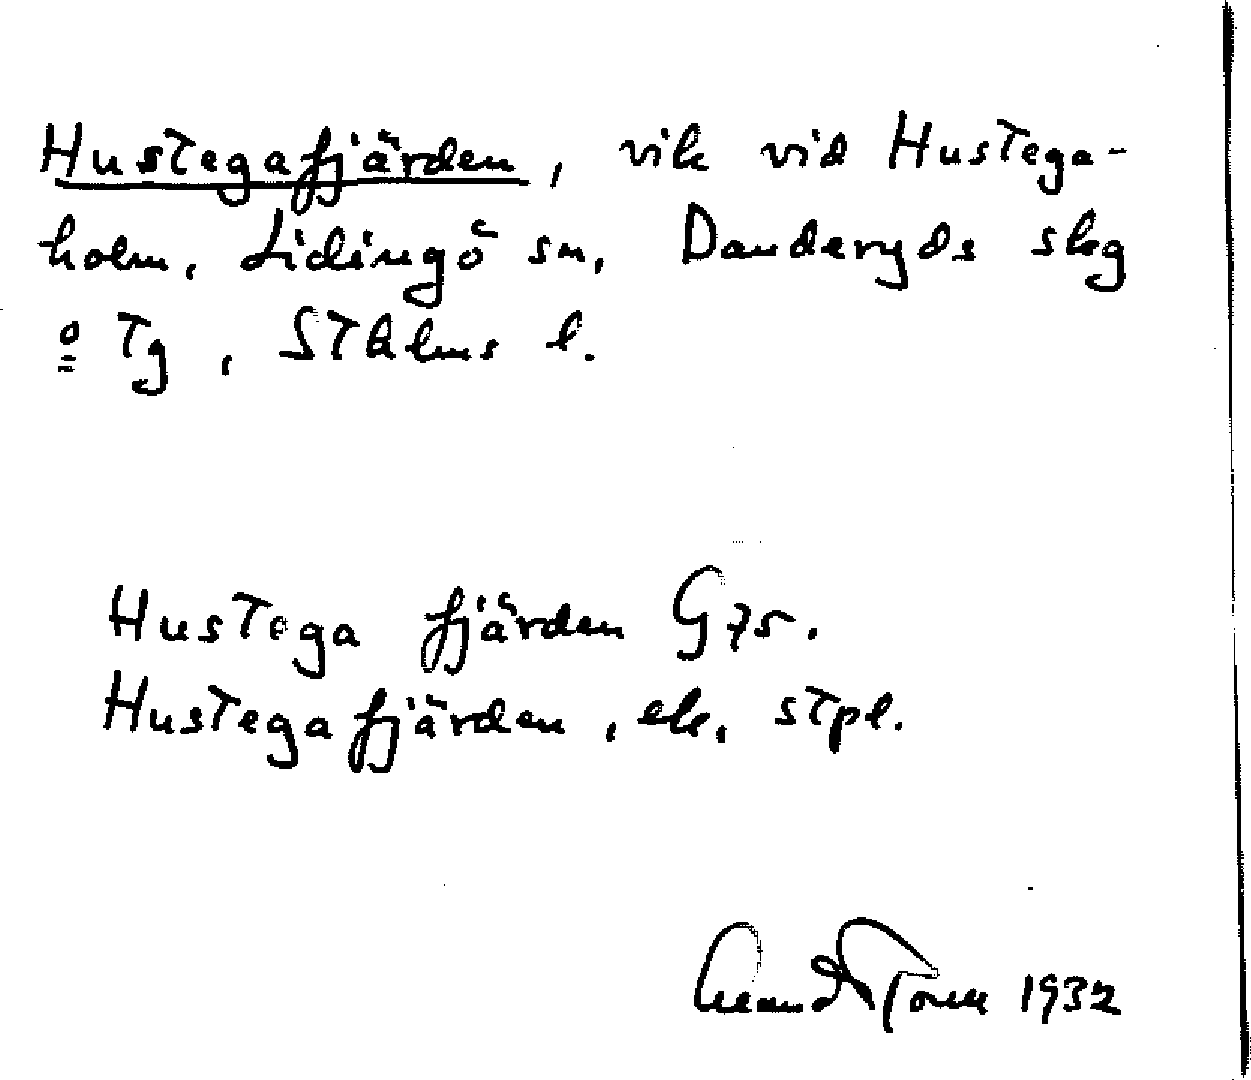 Hustegafjärden, vik vid Hustega-
holm, Lidingö sn, Danderyds skg
o Tg, Sthlms l.
Hustega fjärden G 75.
Hustegafjärden, ek, stpl.
1932